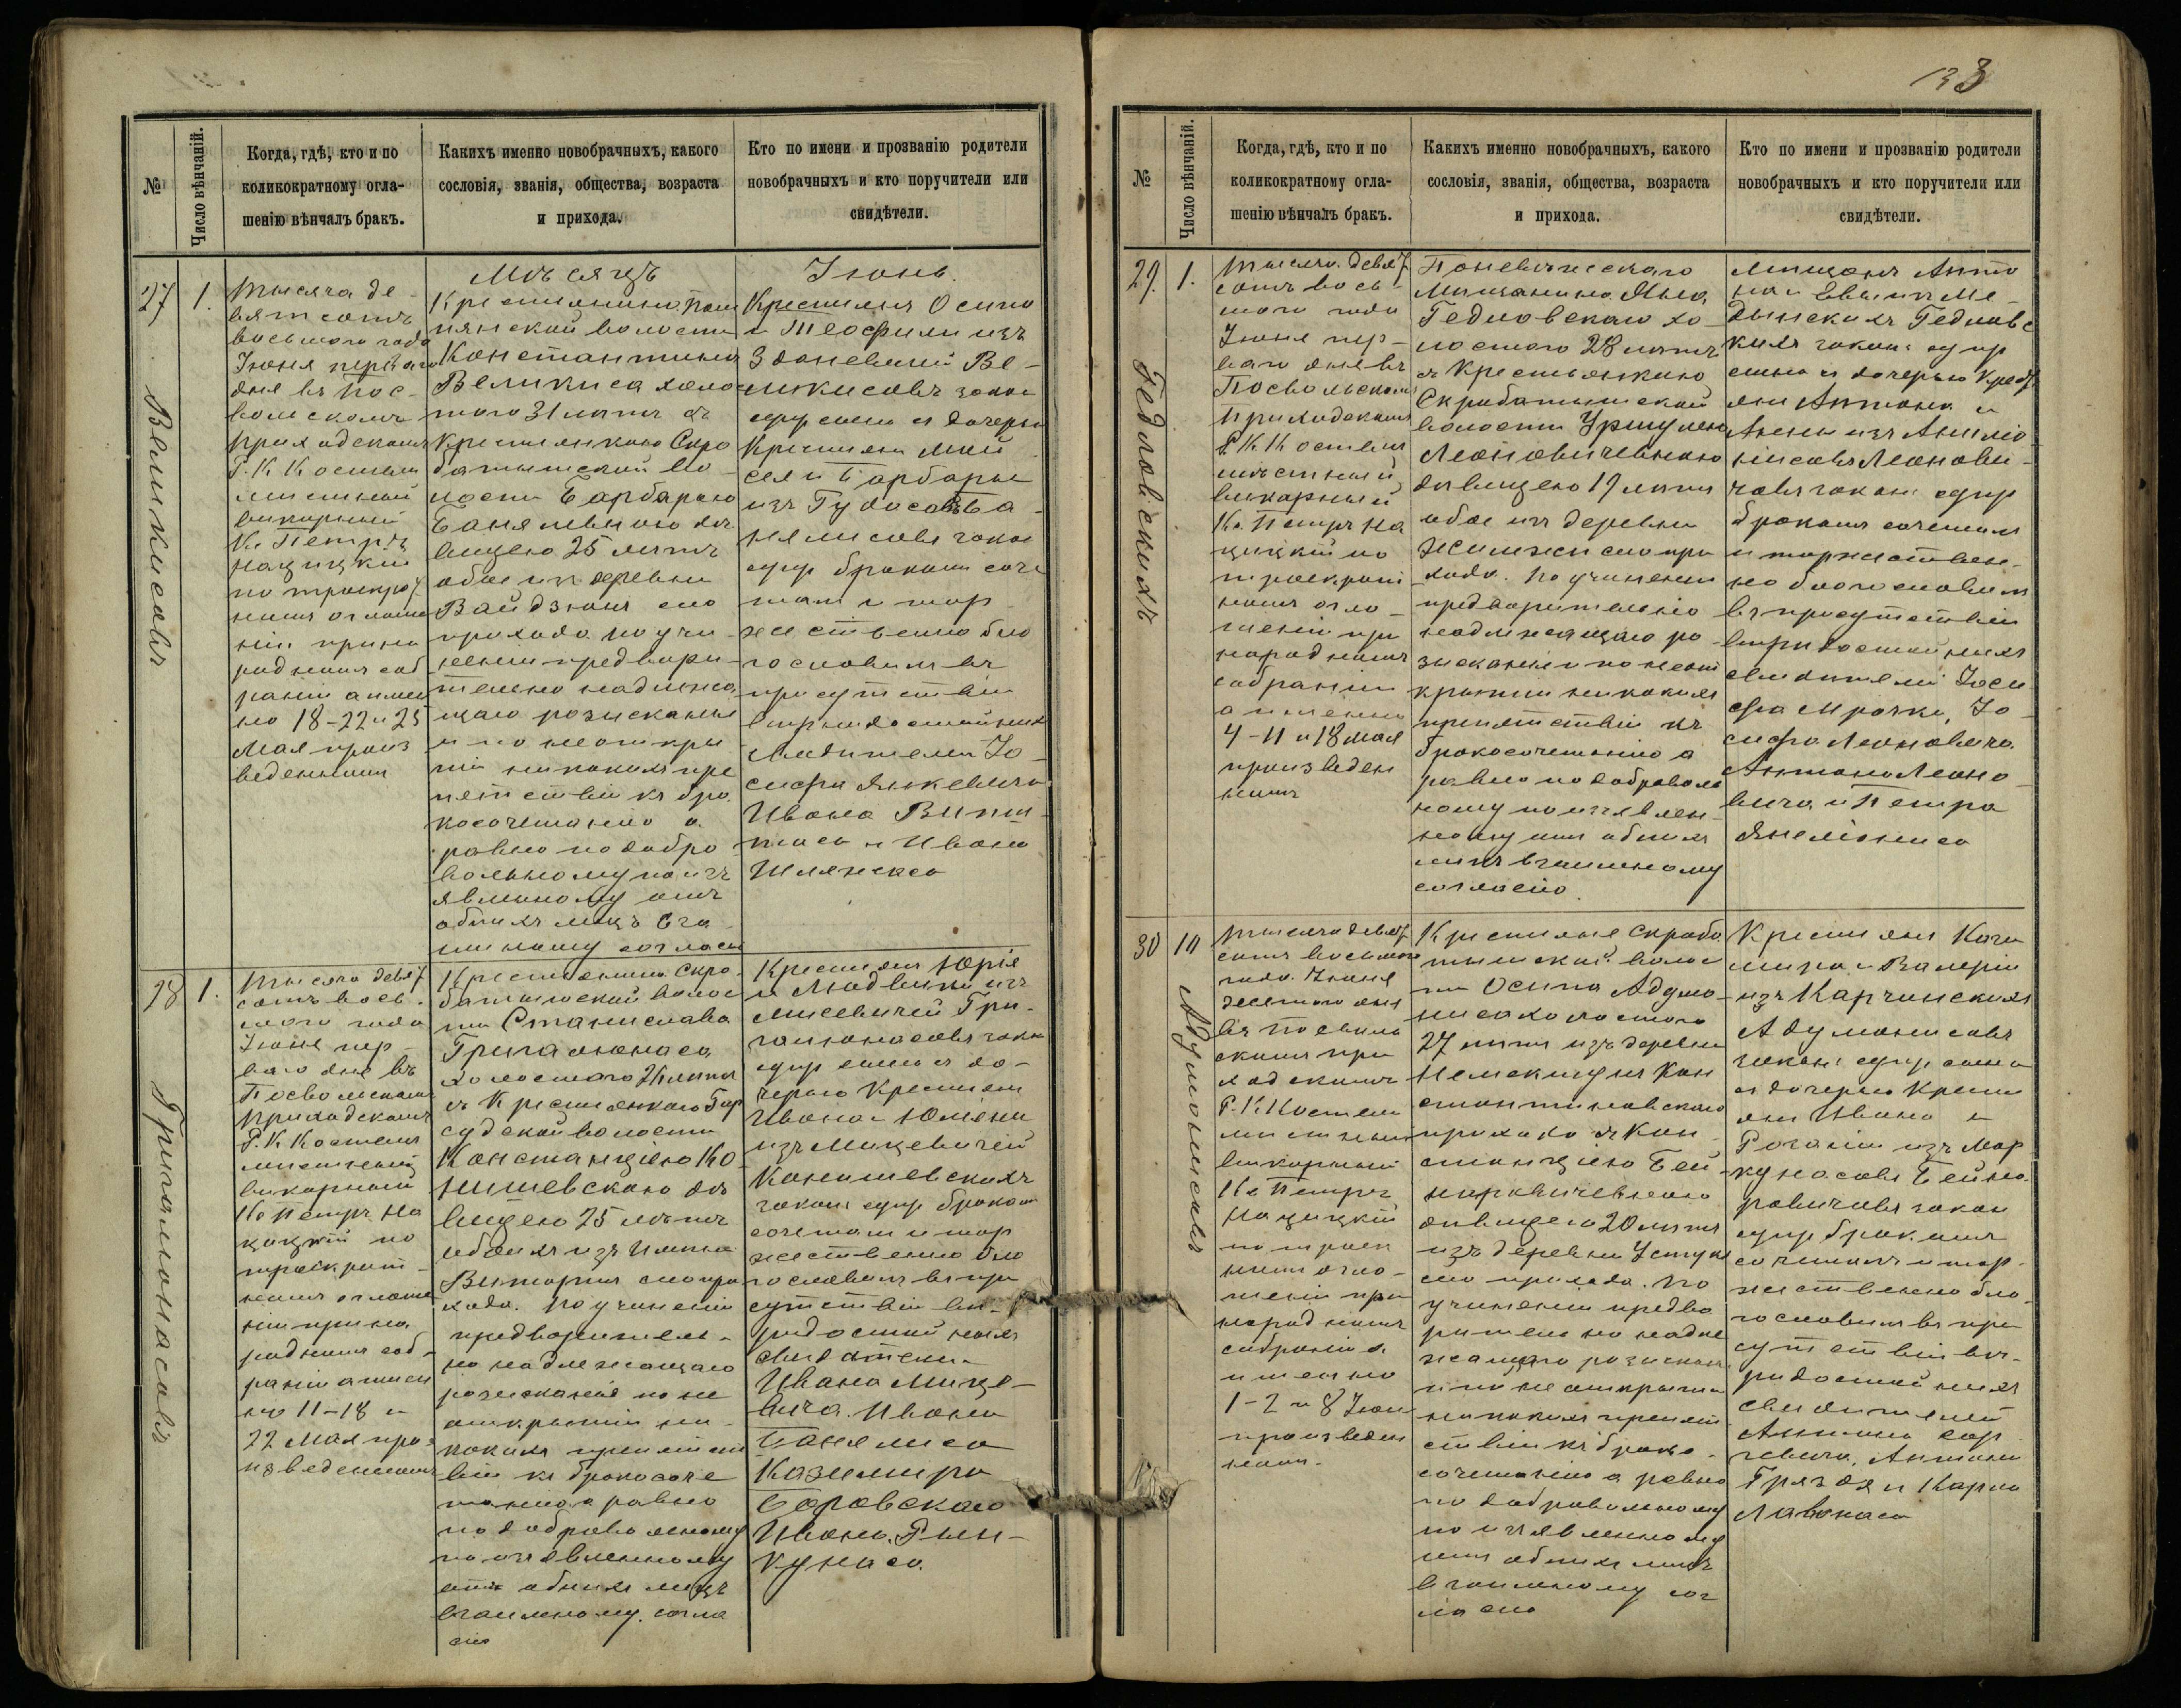 33
№
Число вѣнчаній.
Когда, гдѣ, кто и по
коликократному огла-
шенію вѣнчалъ бракъ.
Какихъ именно новобрачныхъ, какого
сословія, званія, общества, возраста
и прихода.
Кто по имени и прозванію родители
новобрачныхъ и кто поручители или
свидѣтели.
Мѣсяцъ
Іюнь.
27
1.
Великисовъ
Тысяча де-
вятсотъ
восьмого года
Іюня перваго
дня въ Пос-
вольскомъ
приходскомъ
Р. К. Костелѣ
мѣстный
викарный
Кс Петръ
Нацицкій
по троекрат
номъ оглаше
ніи при на
родномъ соб
раніи а имен
но 18-22 и 25
Мая произ
веденномъ
Крестьянина
пянской волости
Константина
Великиса холос
того 31 лѣтъ съ
крестьянкою Скро
батышской во-
лости Барбарою
дѣ
вицею 25 лѣтъ
обое изъ деревни
Вайдзюнъ сего
прихода по учи-
неніи предвари-
тельно надлежа
щаго розысканія
и по неоткры
тіи никакихъ пре
пятствій къ бра
косочетанію а
равно по добро
вольному по изъ
явленному отъ
обѣихъ лицъ вза
имному согласію
Крестьянъ Осипа
и Теофили изъ
Здоневичей Ве-
ликисовъ закон
супр сына съ дочерью
Крестьянъ
и Барбары
изъ
закон
супр бракомъ соче
талъ и тор
жественно бла
гословилъ въ
присутствіи
вѣридостойныхъ
свидѣтелей Іо-
сифа Янкевича
Ивана
и Ивана
28
1.
Григалюнасовъ
Тысяча девят
сотъ вось-
мого года
Іюня пер-
ваго дня въ
Посвольскомъ
приходскомъ
Р. К. Костелѣ
мѣстный
викарный
Кс Петръ На
цицкій по
троекрат-
номъ оглаше
ніи при на
родномъ соб-
раніи а имен
но 11-18 и
22 Мая про-
изведенномъ
Крестьянина Скро-
батышской волос
ти Станислава
Григалюнаса
холостого 26 лѣтъ
съ Крестьянкою
судской волости
Констанціею Ко
нишевскою дѣ
вицею 25 лѣтъ
обоихъ изъ имѣнія
сего при
хода. По учиненіи
предваритель-
но надлежащаго
розысканія по не
открытіи ни-
какихъ препятст
вій къ бракосоче
танію а равно
по добровольному
по изъявленному
отъ обѣихъ лицъ
взаимному согла
сію
Крестьянъ Юрія
и Людвики изъ
Мисевичей Гри-
галюнасовъ закон
супр сына съ до-
черью Крестьянъ
Ивана и
изъ Мицевичей
Конишевскихъ
закон супр бракомъ
сочеталъ и тор
жественно бла
гословилъ въ при
сутствіи вѣ-
ридостойныхъ
свидѣтелей
Ивана Мице-
вича. Ивана
Казимира
Боровскаго
Ивана Рин-
кунаса.
№
Число вѣнчаній.
Когда, гдѣ, кто и по
коликократному огла-
шенію вѣнчалъ бракъ.
Какихъ именно новобрачныхъ, какого
сословія, званія, общества, возраста
и прихода.
Кто по имени и прозванію родители
новобрачныхъ и кто поручители или
свидѣтели.
29.
1.
Гедловскихъ
Тысяча девят
сотъ вось-
мого года
Іюня пер-
ваго дня въ
Посвольскомъ
приходскомъ
Р. К. Костелѣ
мѣстный
викарный
Кс. Петръ На
цицкій по
троекрат
номъ огла-
шеніи при
народномъ
собраніи
а именно
4-11 и 18 мая
произведен
номъ
Поневѣжскаго
Мѣщанина
Гедловскаго хо-
лостого 28 лѣтъ
съ Крестьянкою
Скробатышской
волости Уршулею
Леоновичевною
дѣвицею 19 лѣтъ
обое изъ деревни
сего при
хода. По учиненіи
предварительно
надлежащаго ро
зысканія и по неот
крытіи никакихъ
препятствій къ
бракосочетанію а
равно по доброволь
ному по изъявлен-
ному отъ обѣихъ
лицъ взаимному
согласію
Мѣщанъ Анто
на и Евы изъ Ме-
дынскихъ Гедловс
кихъ закон супр
сына съ дочерью Крест
янъ Антона и
Анны изъ
Леонови-
човъ закон супр
бракомъ сочеталъ
и торжествен-
но благословилъ
въ присутствіи
вѣридостойныхъ
свидѣтелей Іоси
фа Мрочки, Іо-
сифа Леоновича
Антона Леоно-
вича и Петра
30
10
Адумонисовъ
Тысяча девят
сотъ восьмого
года Іюня
десятого дня
въ Посволь
скомъ при
ходскомъ
Р. К. Костелѣ
мѣстный
викарный
Кс Петръ
Нацицкій
по троек
номъ огла-
шеніи при
народномъ
собраніи а
именно
1-2 и 8 Іюня
произведен
номъ.
Крестьянина Скроба
тышской волос
ти Осипа Адумо-
ниса холостого
27 лѣтъ изъ деревни
Кон
стантиновскаго
прихода съ Кон-
станціею Бей-
наровичевною
дѣвицею 20 лѣтъ
изъ деревни
сего прихода. По
учиненіи предва
рительно надле
жащаго розыскан
и по не открытіи
никакихъ препят
ствій къ брако-
сочетанію а равно
по добровольному
по изъявленному
отъ обѣихъ лицъ
взаимному сог
ласію
Крестьянъ Кази
мира и Валеріи
изъ Карчинскихъ
Адумонисовъ
закон супр сына
съ дочерью Кресть
янъ Ивана и
Розаліи изъ Мар
кунасовъ Бейна-
ровичовъ закон
супр бракомъ
сочеталъ и тор-
жественно бла-
гословилъ въ при
сутствіи вѣ-
ридостойныхъ
свидѣтелей
Антона
Антона
и Карла